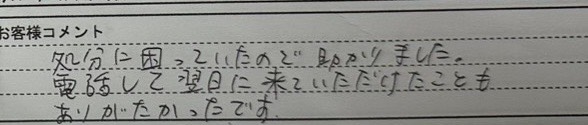 お客様コメント
処分に困っていたので助かりました。
電話して翌日に来ていただけたことも
ありがたかったです